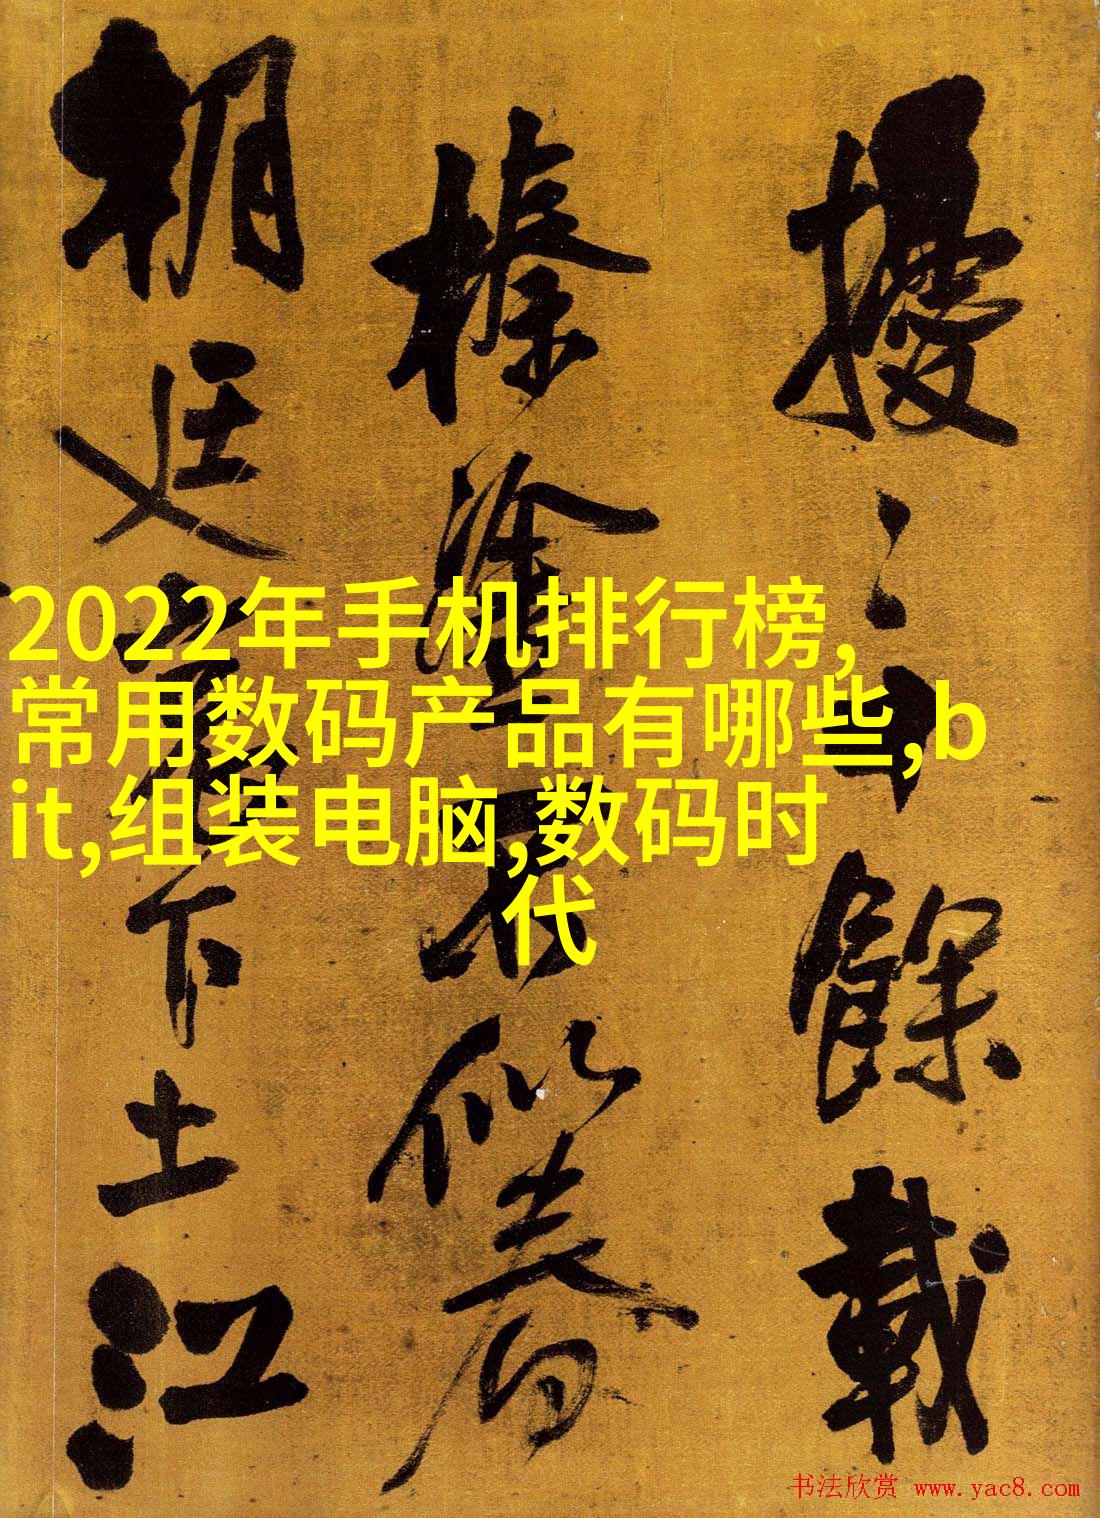 2022年手机排行榜,
常用数码产品有哪些,b
it,组装电脑,数码时
代
擾餘載
榛塗
下土江
书法欣赏 www.yac8.com